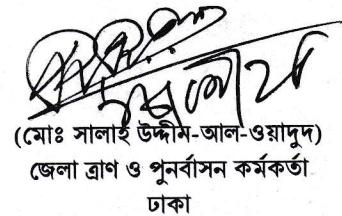 (মোঃ সালাহ উদ্দীন-আল-ওয়াদুদ)
জেলা ত্রাণ ও পুনর্বাসন কর্মকর্তা
ঢাকা